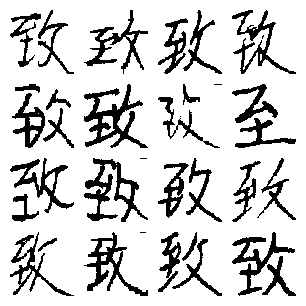 致致致致
致致致至
致致致致
致致致致